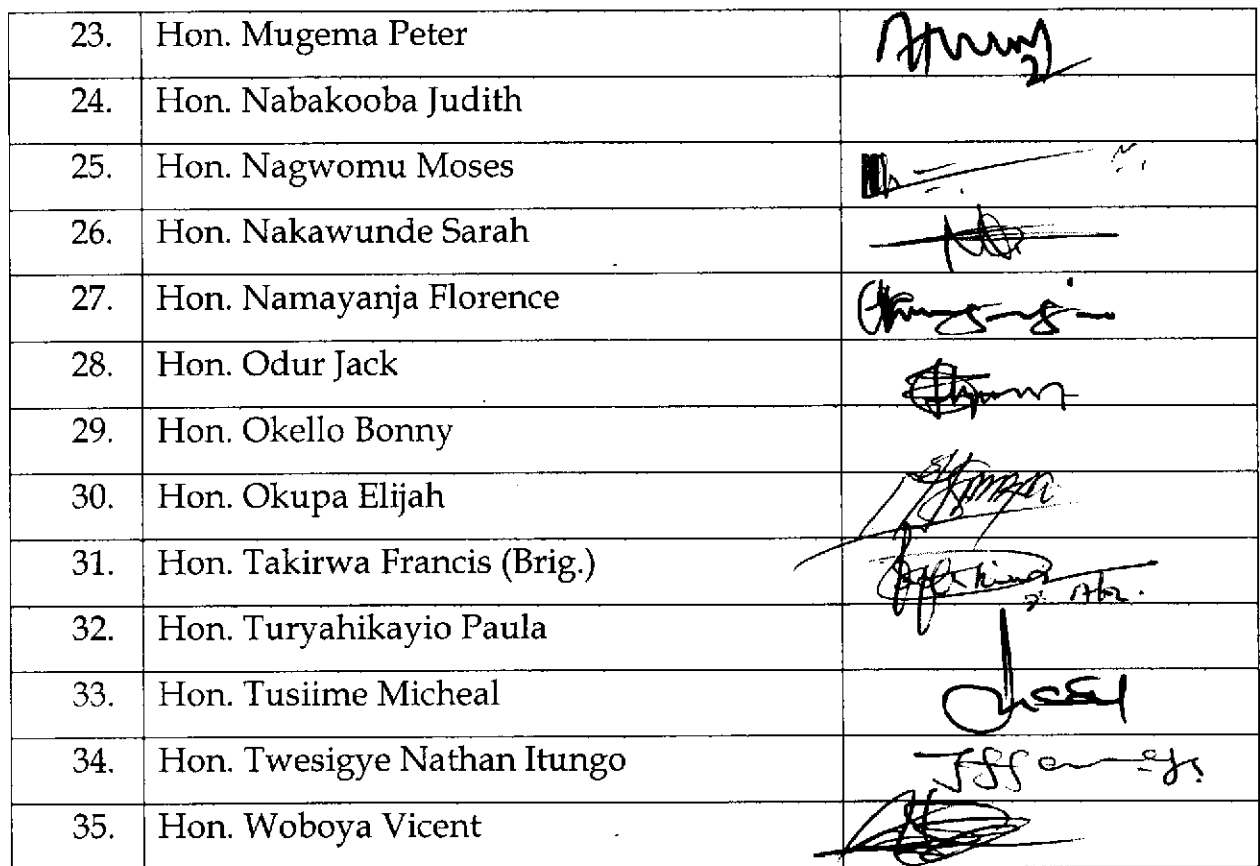 23. Hon. Mugema Peter
24. Hon. Nabakooba Judith
25. Hon. Nagwomu Moses
26. Hon. Nakawunde Sarah
27. Hon. Namayanja Florence
28. Hon. Odur Jack
29. Hon. Okello Bonny
30. Hon. Okupa Elijah
31. Hon. Takirwa Francis (Brig.)
32. Hon. Turyahikayio Paula
33. Hon. Tusiime Micheal
34. Hon. Twesigye Nathan Itungo
35. Hon. Woboya Vicent